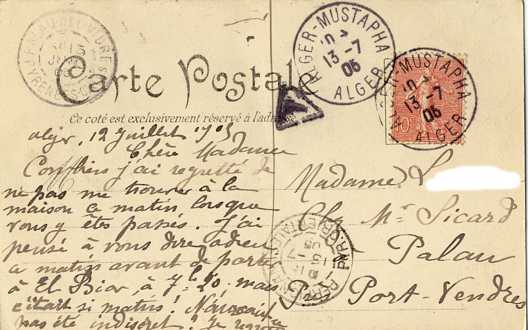 Carte Postale
Ce côté est exclusivement réservé à l'adresse
ALGER-MUSTAPHA
13-7
05
ALGER
ALGER-MUSTAPHA
13-7
05
ALGER
T
10
alger, 12 Juillet 1905
Chère Madame
Combien j'ai regretté de
ne pas me trouver à la
maison ce matin, lorsque
vous y êtes passés. J'ai
pensé à vous dire adieu
ce matin avant de partir
à El Biar, à 7h 20, mais
c'était si matin!
pas été indiscret. Je regrette
Madame
Chez Mr Sicard
Palau
Port-Vendres